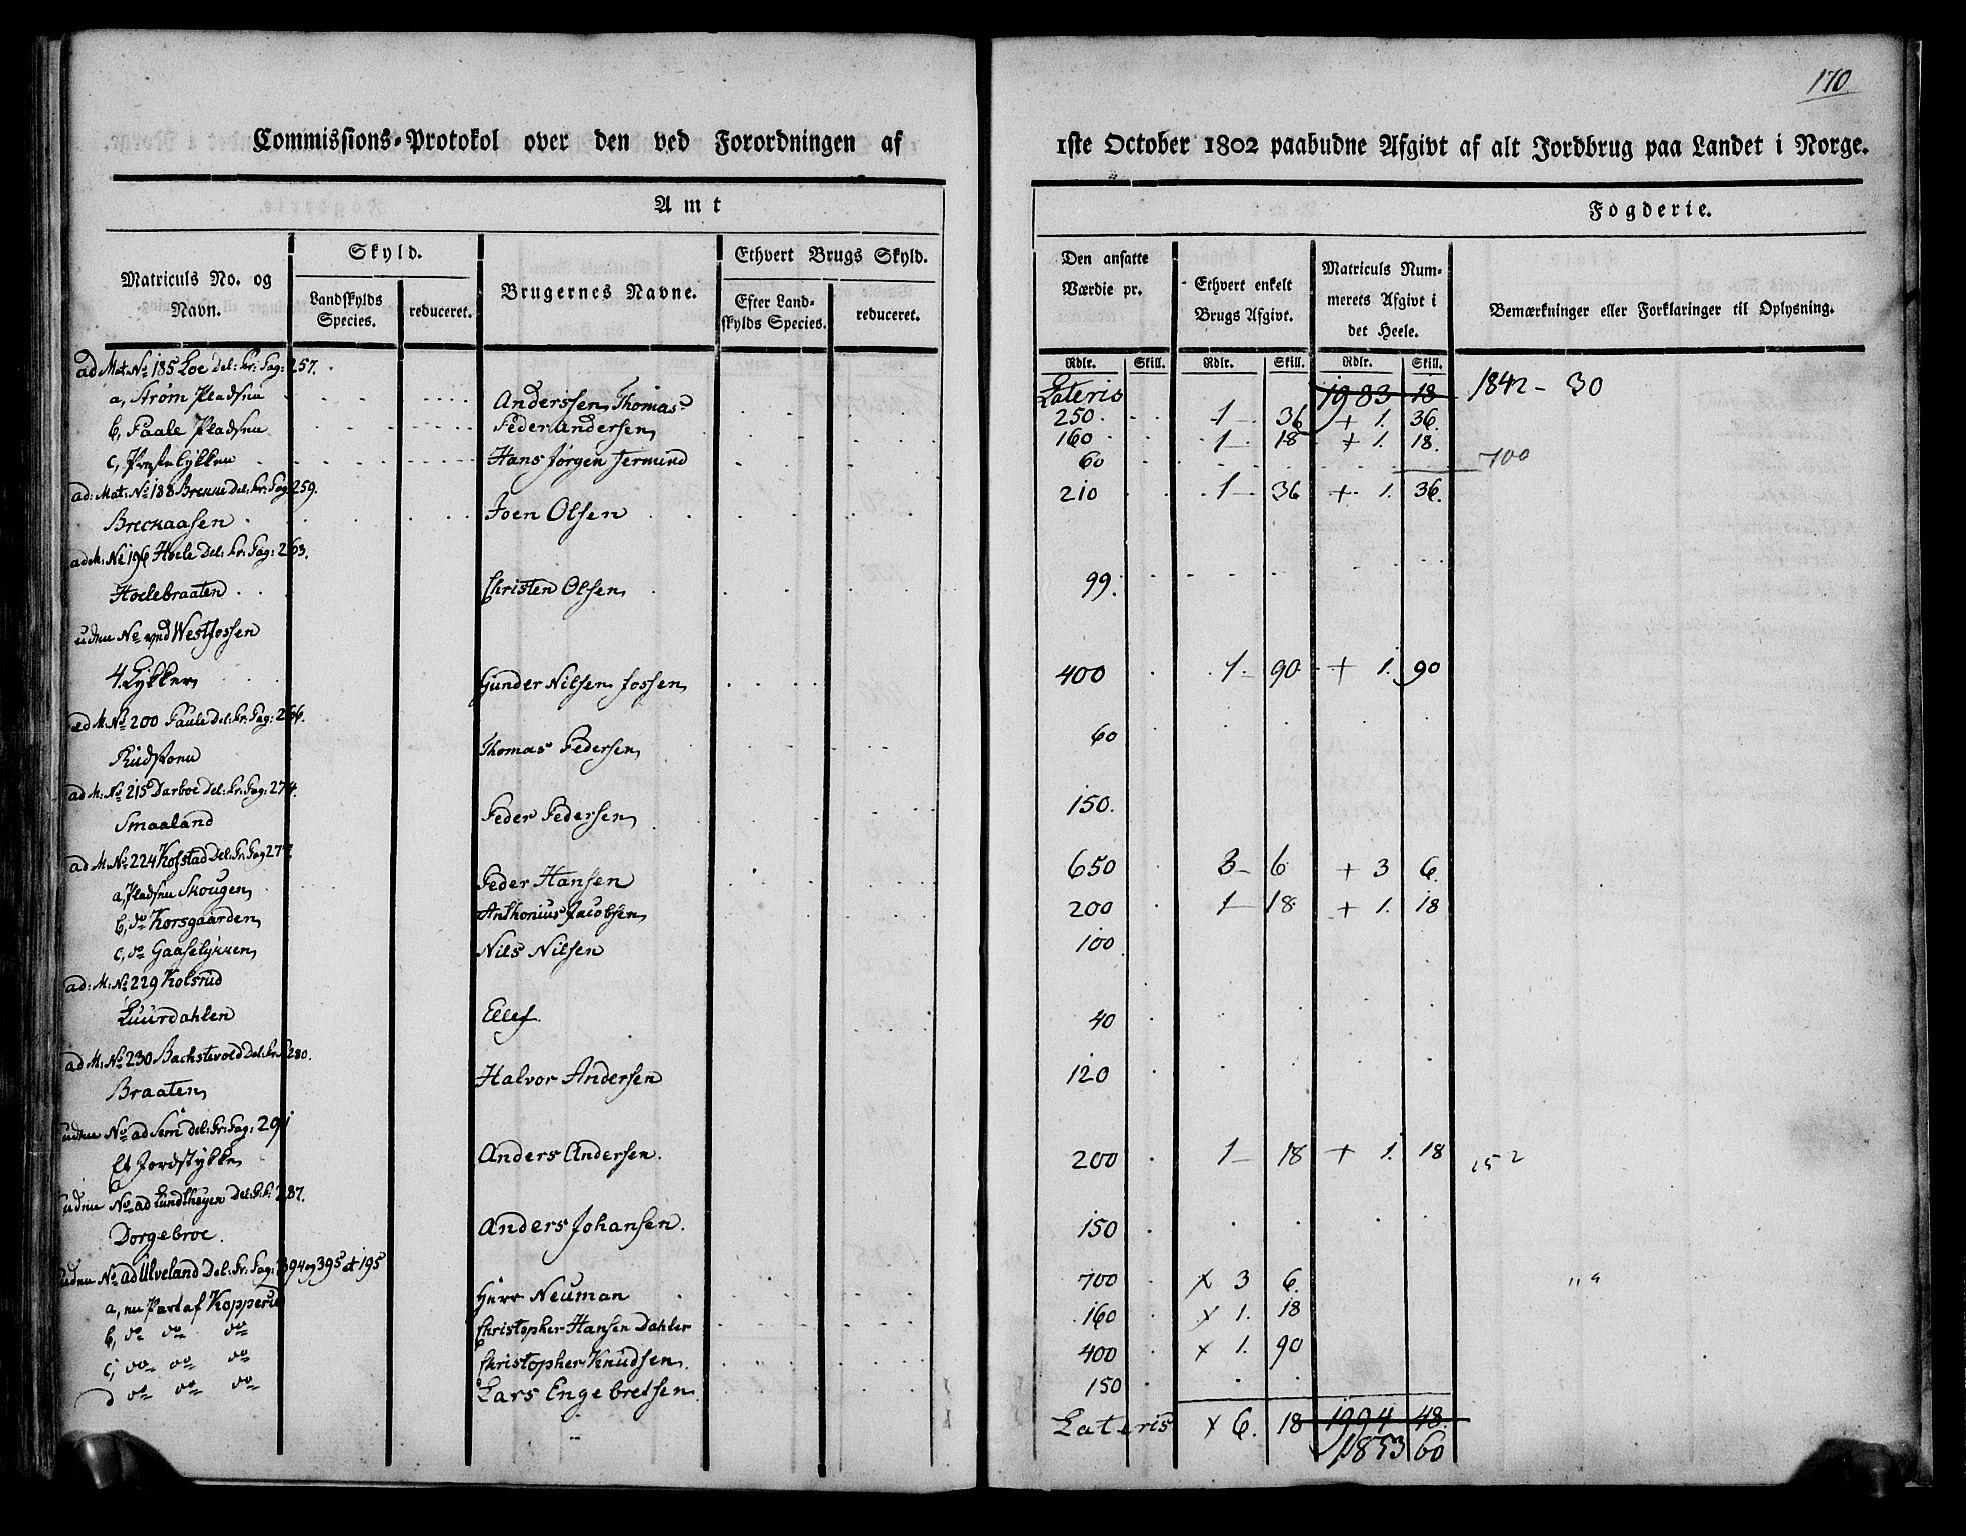 170
Commissions-Protokol over den ved Forordningen af
1ste October 1802 paabudne Afgivt af alt Jordbrug paa Landet i Norge.
Amt
Fogderie.
Matriculs No. og Navn.
Skyld.
Landskylds Species.
reduceret.
Brugernes Navne.
Ethvert Brugs Skyld.
Efter Landskylds Species.
reduceret.
Den ansatte Værdie pr.
Ethvert enkelt Brugs Afgivt.
Matriculs Nummerets Afgivt i det Heele.
Bemærkninger eller Forklaringer til Oplysning.
Rdlr. Skill. Rdlr. Skill. Rdlr. Skill.
ad Mat. No 185 Loe Del: Pr: Pag: 257.
Lateris 1983 18 1842 - 30
a, Strøm Pladsen Anderssen Thomas 250. 1 - 36 + 1. 36.
b, Paale Pladsen Peder Andersen 160 1 - 18 + 1. 18.
c, Præstelykken Hans Jørgen Termund 60
700
ad: Mat: No 188 Brenne Del: Pr: Pag 259. 210 1 - 36 + 1. 36.
Breckaasen Joen Olsen
ad M: No 196 Hoele Del: Pr: Pag: 263.
Hoelebraaten Christen Olsen 99.
uden No ved Westfossen
4. Lykker Gunder Nilsen Fossen 400 1. 90 + 1. 90
ad M: No 200 Paule Del: Pr: Pag: 266.
Rudstonu Thomas Pedersen 60
ad M: No 215 Darboe Del: Pr: Pag: 274.
Smaaland Peder Pedersen 150.
ad M: No 224 Kolstad Del: Pr: Pag 277.
a, Pladsen Skougen Peder Hansen 650 3 - 6 + 3 6.
b, do Korsgaarden Anthonius Jacobsen 200 1 - 18 + 1. 18
c, do Gaaselykken Nils Nilsen 100
ad: M: No 229 Kolsrud
Luurdahlen Ellef 40
ad M: No 230 Bachstevold Del: Pr: P 280.
Braaten Halvor Andersen 120
uden No ad Sem del: Pr: Pag: 291
Et Jordstykke Anders Andersen. 200 1 - 18 + 1. 18 152
uden No ad Lundthøyen Del: Pr: P: 287.
Dorgebroe. Anders Johansen. 150
uden No ad Ulveland Del: Pr: Pag: 394 og 395 et 195
a, en Part af Kopperud Herr Neuman 700 x 3 6.
b, do do do Christopher Hansen Dahler 160 x 1. 18
c, do do do Christopher Knudsen. 400 x 1. 90
d do do do Lars Engebretsen 150
Lateris x 6. 18 1994 48.
1853 60